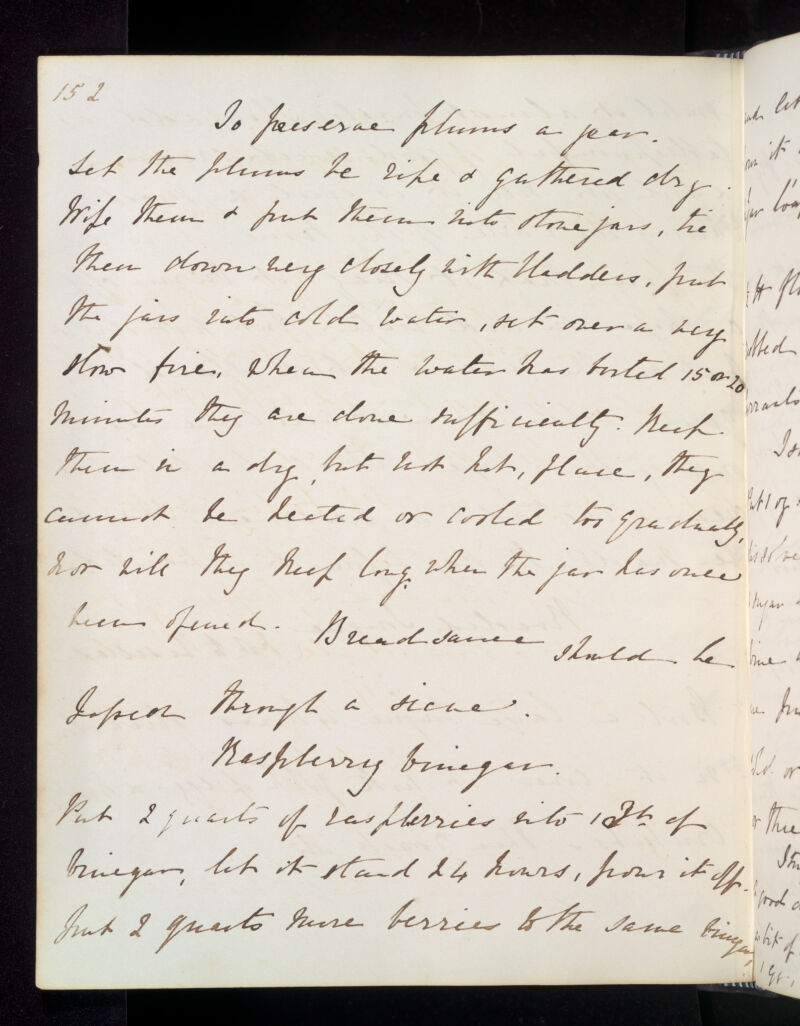 152
To preserve plums a year.
Let the plums be ripe & gathered dry.
Wipe them & put them into stone jars, tie
them down very closely with bladders, put
the jars into cold water, set over a very
slow fire, when the water has boiled 15 or 20
minutes they are done sufficiently. Keep
them in a dry, but not hot, place, they
cannot be heated or cooled too gradually,
nor will they keep long, when the jar has once
been opened. Bread sauce should be
passed through a sieve.
Raspberry Vinegar.
Put 2 quarts of raspberries into 1 of
vinegar, let it stand 24 hours, pour it off.
put 2 quarts more berries to the same vinegar,